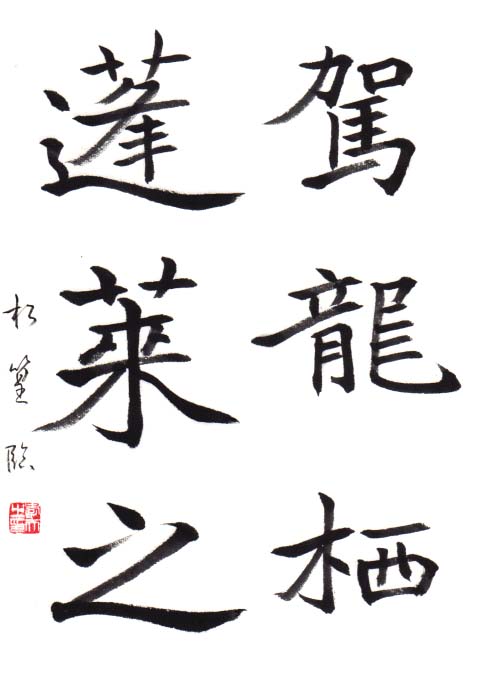 駕龍栖
蓬萊之
松篁臨